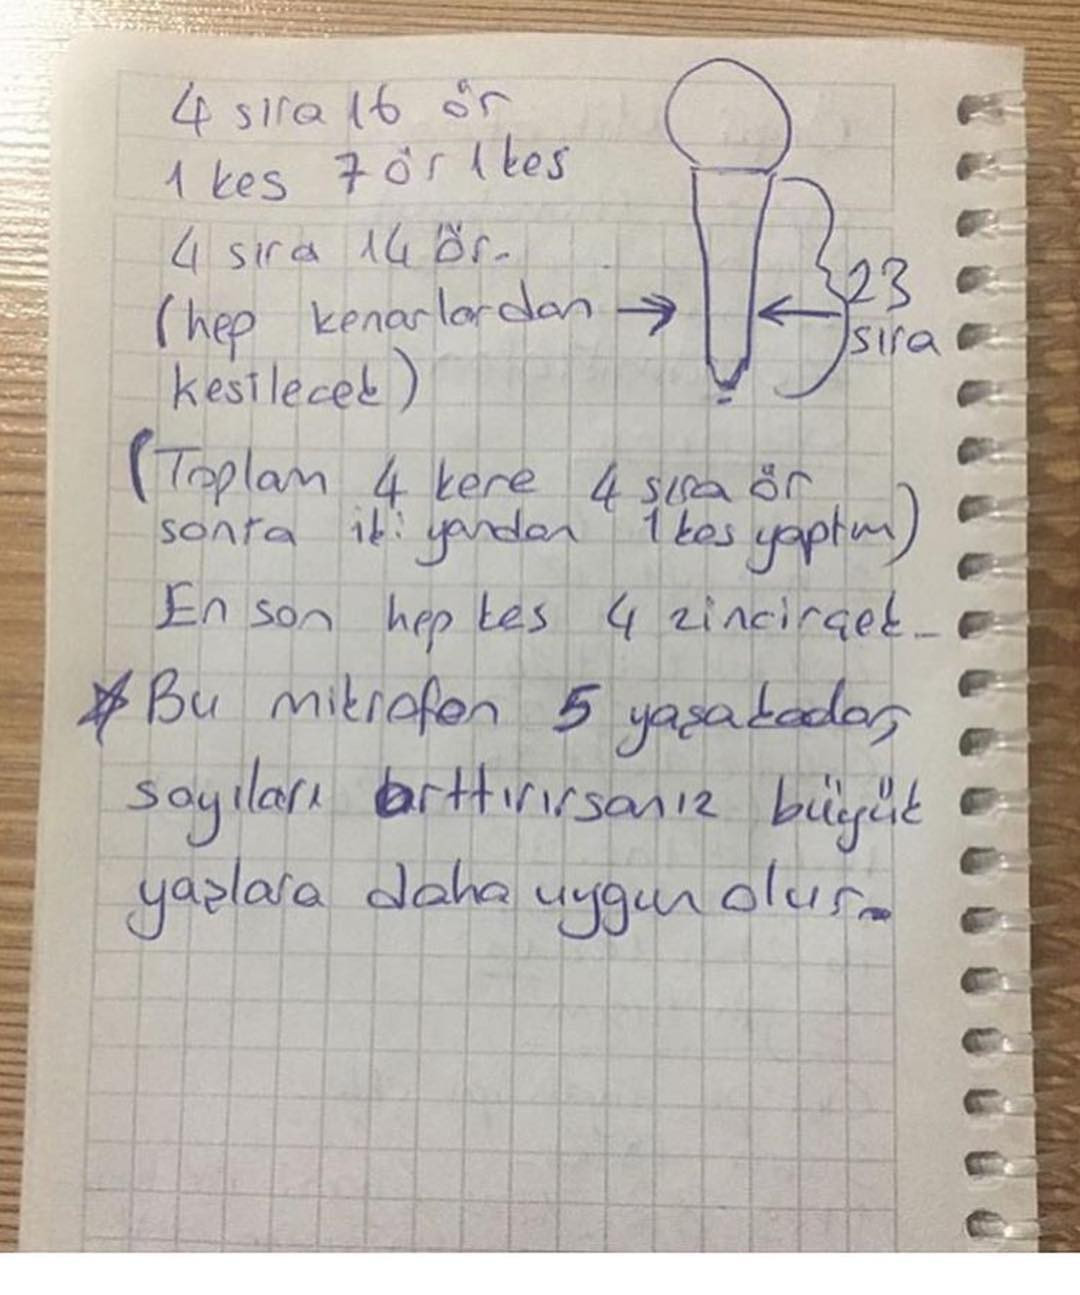 4 sıra 16 ör
1 kes 7 ör 1 kes
4 sıra 14 ör.
(hep kenarlardan
kesilecek)
23
sıra
(Toplam 4 kere 4 sıra ör
sonra iki yandan 1 kes yaptım)
En son hep kes 4 zincir çek.
* Bu mikrofon 5 yaşa kadar,
sayıları arttırırsanız büyük
yaşlara daha uygun olur.